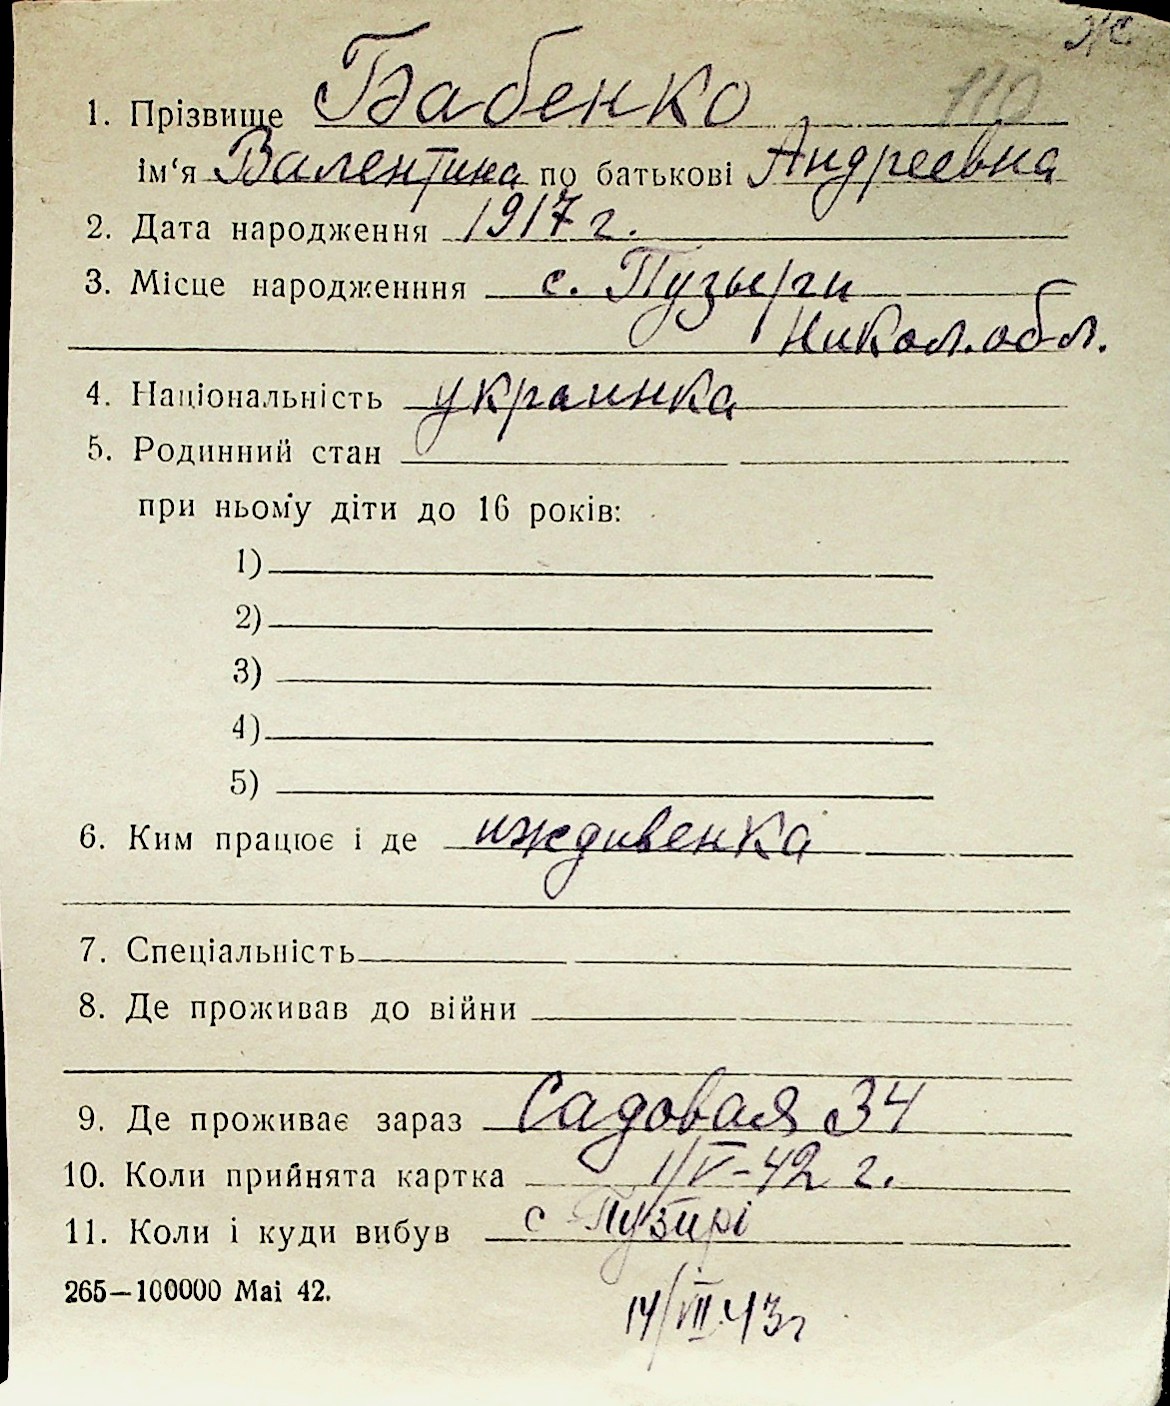 ж
110
1. Прізвище Бабенко
ім‘я Валентина по батькові Андреевна
2. Дата народження 1917 г.
3. Місце народженння с. Пузыри
Никол. обл.
4. Національність украинка
5. Родинний стан
при ньому діти до 16 років:
1)
2)
3)
4)
5)
6. Ким працює і де иждивенка
7. Спеціальність
8. Де проживав до війни
9. Де проживає зараз Садовая 34
10. Коли прийнята картка 1/V-42 г.
11. Коли і куди вибув с Пузирі
265—100000 Mai 42.
14/VII 43 г